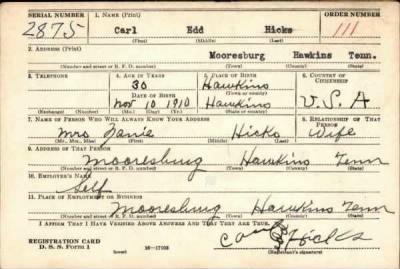 SERIAL NUMBER 1. NAME (Print) ORDER NUMBER
2875 Carl Edd Hicks 111
(First) (Middle) (Last)
2. ADDRESS (Print)
Mooresburg Hawkins Tenn.
(Number and street or R. F. D. number) (Town) (County) (State)
3. TELEPHONE 4. AGE IN YEARS 5. PLACE OF BIRTH 6. COUNTRY OF CITIZENSHIP
30 Hawkins
DATE OF BIRTH (Town or county)
Nov 10 1910 Hawkins U.S.A
(Exchange) (Number) (Mo.) (Day) (Yr.) (State or country)
7. NAME OF PERSON WHO WILL ALWAYS KNOW YOUR ADDRESS 8. RELATIONSHIP OF THAT PERSON
Mrs Hicks Wife
(Mr., Mrs., Miss) (First) (Middle) (Last)
9. ADDRESS OF THAT PERSON
Mooresburg Hawkins Tenn
(Number and street or R. F. D. number) (Town) (County) (State)
10. EMPLOYER'S NAME
Self
11. PLACE OF EMPLOYMENT OR BUSINESS
Mooresburg Hawkins Tenn
(Number and street or R. F. D. number) (Town) (County) (State)
I AFFIRM THAT I HAVE VERIFIED ABOVE ANSWERS AND THAT THEY ARE TRUE.
REGISTRATION CARD
D. S. S. Form 1 16—17105 Hicks
(Registrant's signature)